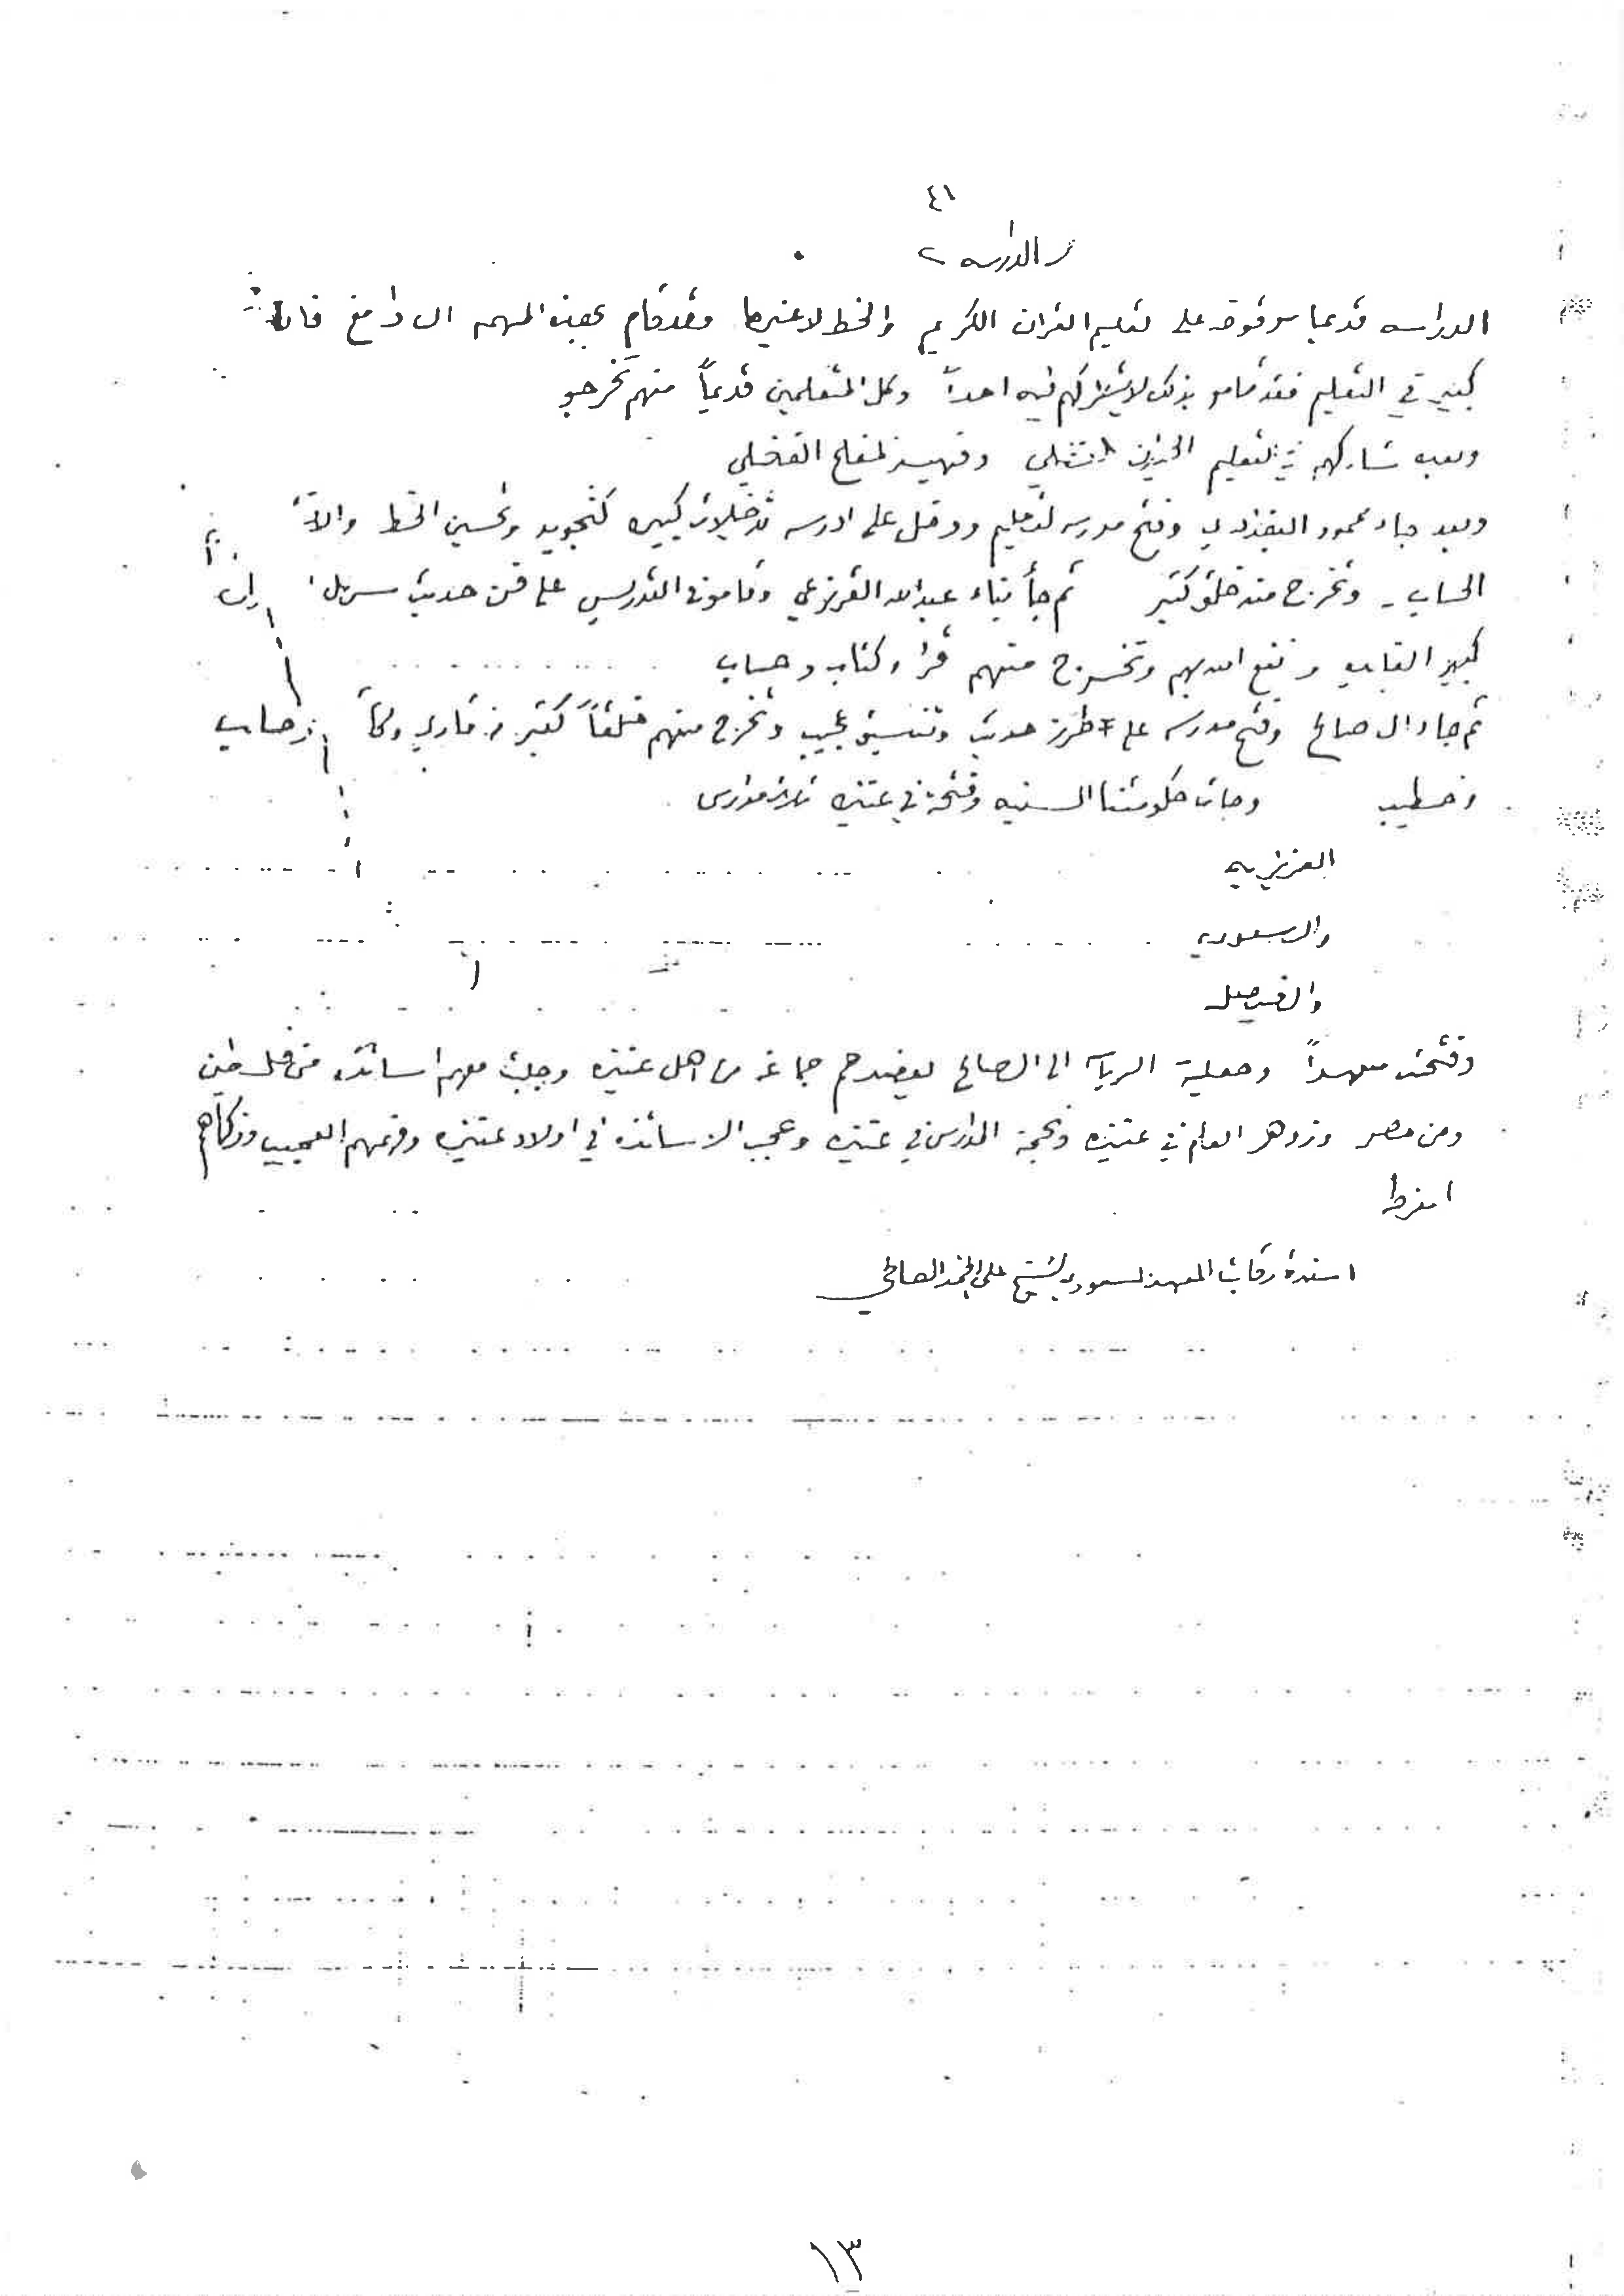 ٤١
الدراسه
الدراسه قديما موقوفه على تعليم القران الكريم والخط لا غيرها وقد قام بهذه المهمه ال دامغ
كبير في التعليم فقد قامو بذلك لا يشاركهم فيه احداً وكل المتعلمين قديماً منهم تخرجو
وبعد شاركهم في التعليم
وبعد جاء محمود البغدادي وفتح مدرسه لتعليم ودخل على ادرسه تدخيلات كبيره كتجويد وتحسين الخط والا
الحساب - وتخرج منه خلق كثير ثم جأ ابناء عبدالله القرزعي وقامو في التدريس على فن حديث سهل
كبير القايده ونفع الله بهم وتخرج منهم قرا وكتاب وحساب
ثم جاء ال صالح وفتح مدرسه على طرز حديث وتنسيق عجيب وتخرج منهم خلقاً كثير من قاري وكا
وخطيب وجات حكومتنا السنيه وفتحة في عنيزه ثلاث مدارس
العزيزيه
والسعوديه
والفيصليه
وفتحت معهداً وجعلية الرياسه الى الصالح يعضدهم جماعه من اهل عنيزه وجلبت معهم اساتذه من فلسطين
ومن مصر وزدهر العلم في عنيزه ونجحة المدارس في عنيزه وعجب الاساتذه في اولاد عنيزه وفهمهم العجيب وذكاهم
المفرط
المعهد السعودي الشيخ علي الحمد الصالحي
١٣